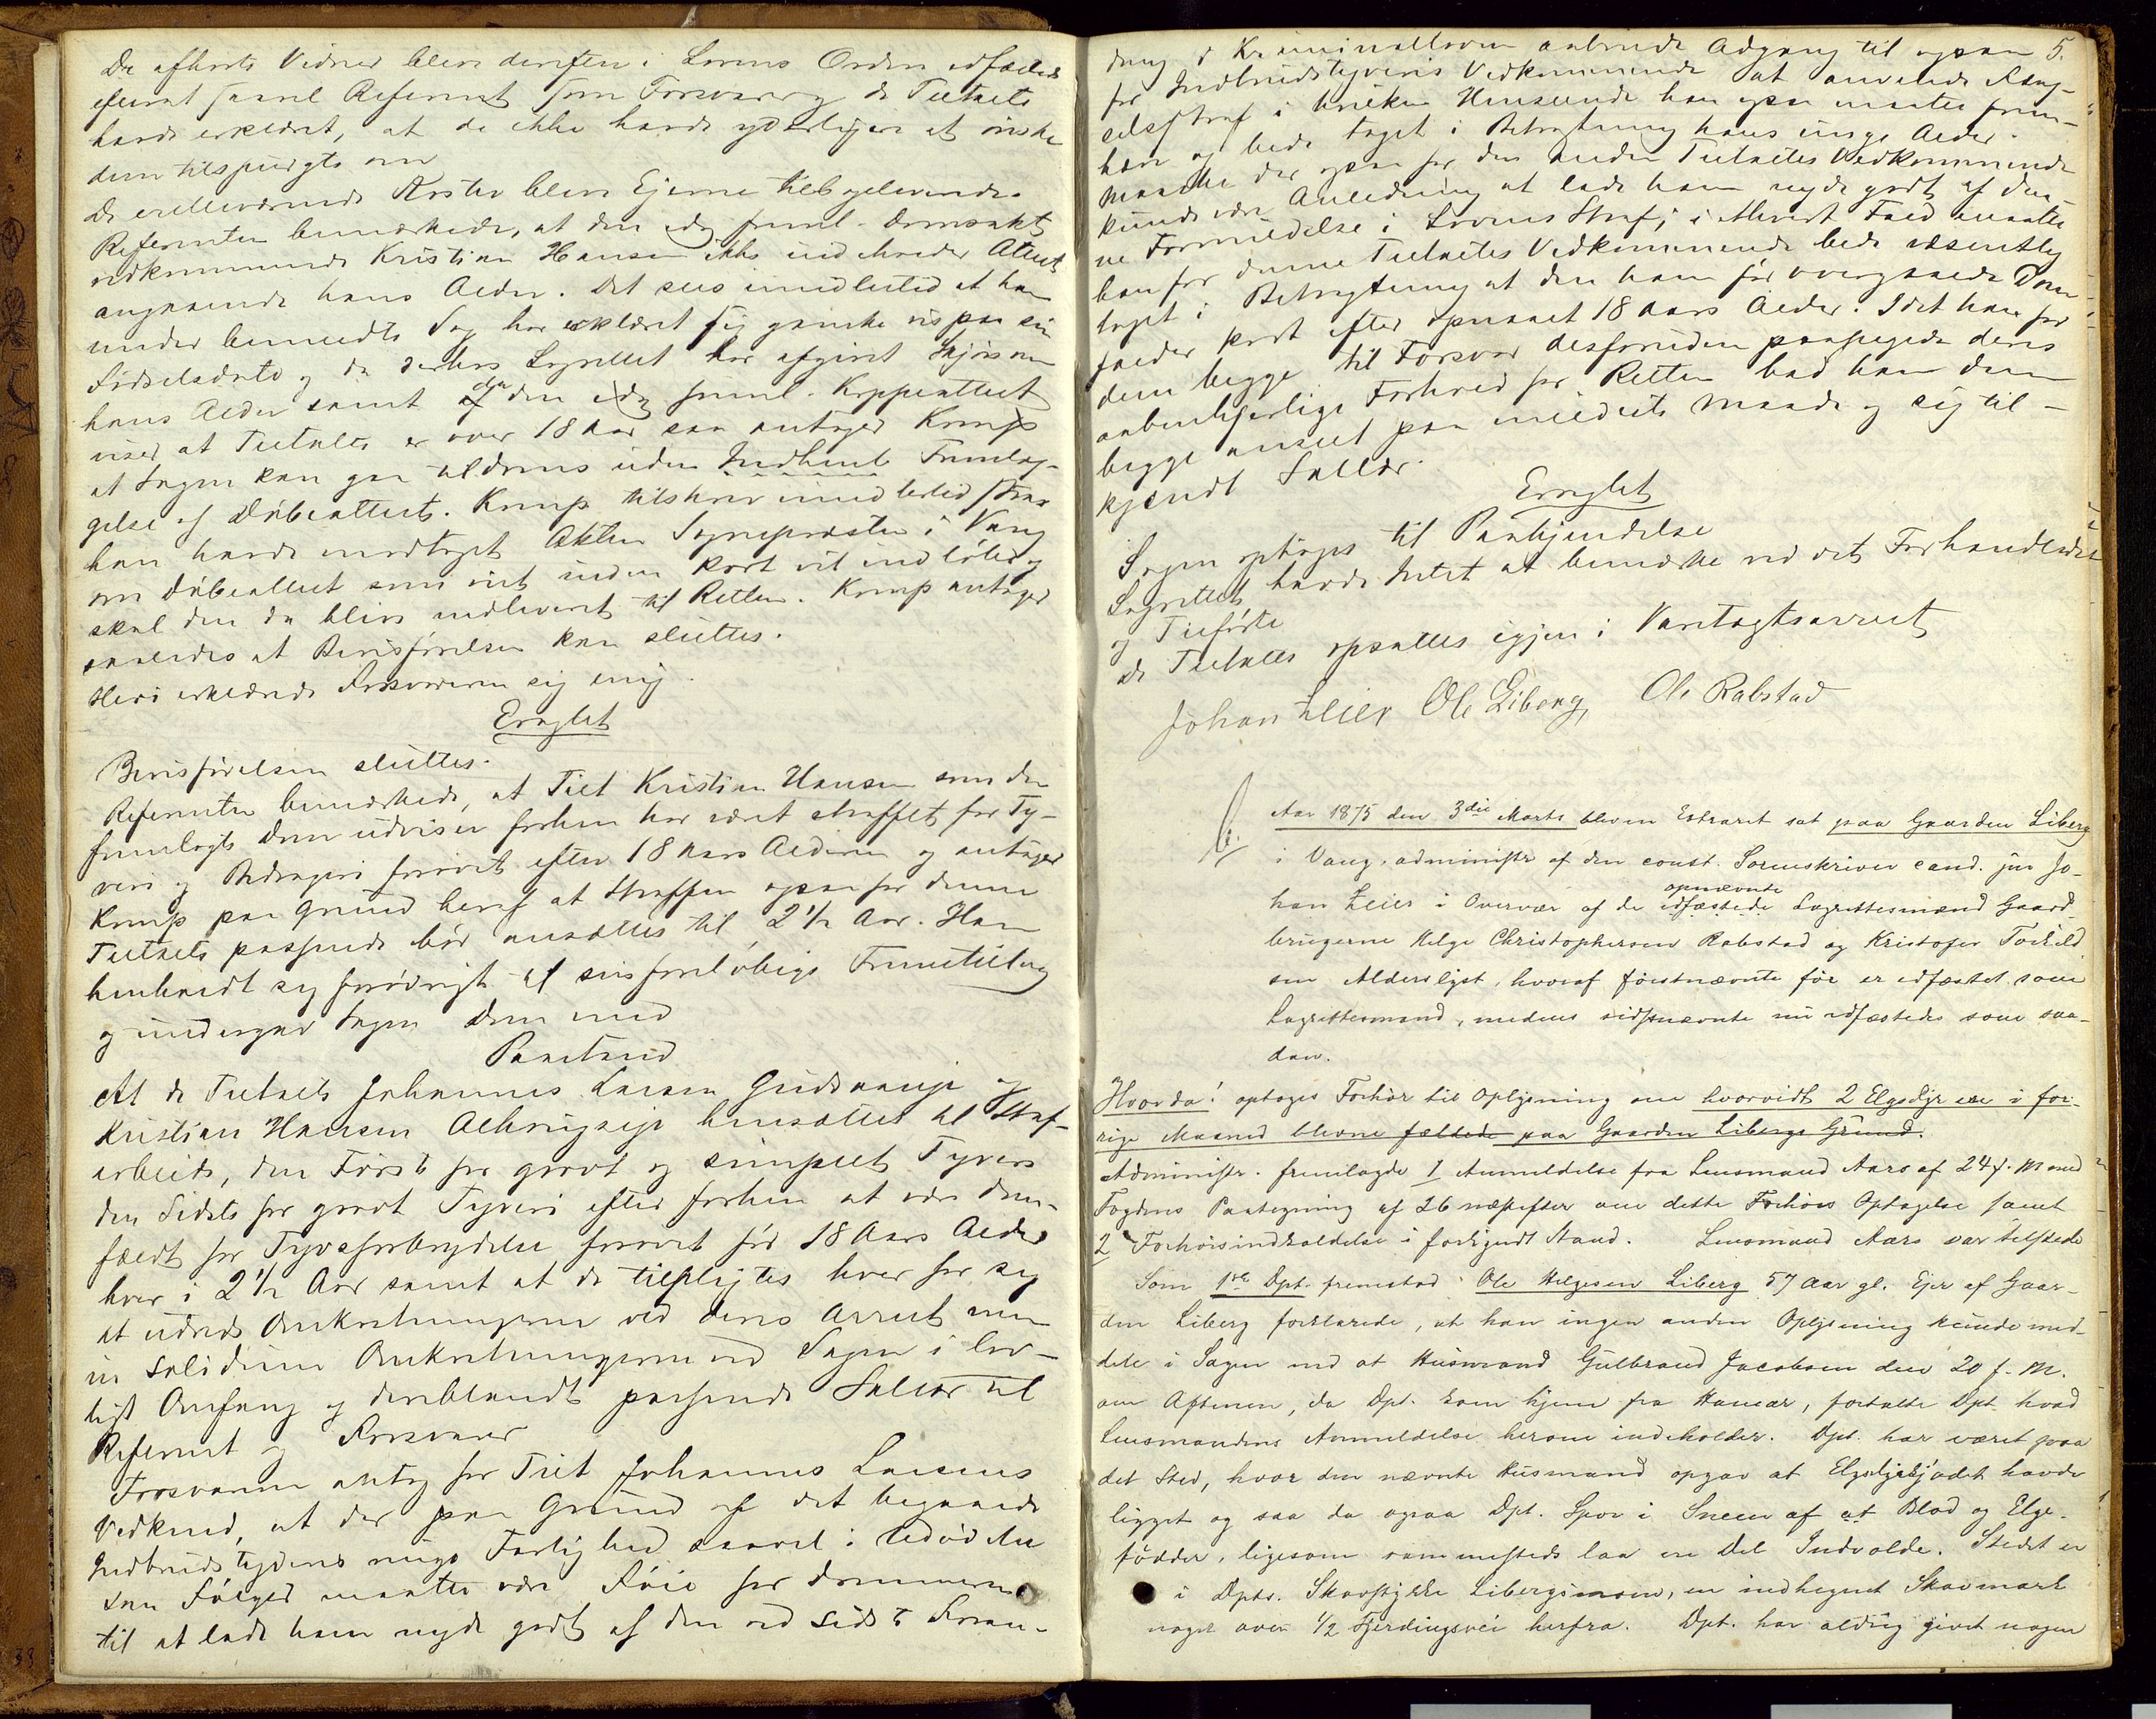 De afhørte Vidner bleve derefter i Lovens Orden edfæstede
efterat saavel Referent som Forsvarer og de Tiltalte
havde erklæret, at de ikke havde yderligere at ønske
dem tilspurgte om
De tilstedeværende Koster bleve Ejerne tilbageleverede.
Referenten bemærkede, at den idag freml. Domsakt
vedkommende Kristian Hansen ikke indeholder Attest
angaaende hans Alder. Det sees imidlertid at han
under bemeldte Sag har erklæret sig ganske vis paa sin
Fødselsdato og da derhos Lagrettet har afgivet Skjøn om
hans Alder samt da den idag freml. Koppeattest
viser at Tiltalte er over 18 Aar saa antager Komp
at Sagen kan gaa til Doms uden Fremlæg-
gelse af Døbeattest. Komp tilskrev imidlertid strax
han havde modtaget Akten Sognepræsten i Vang
om Døbeattest som vist inden kort vil indløbe og
skal den da blive indleveret til Retten. Komp antager
saaledes at Bevisførelsen kan sluttes.
Heri erklærede Forsvareren sig enig.
Eragtet
Bevisførelsen sluttes.
Referenten bemærkede, at Tilt Kristian Hansen som den
fremlagte Dom udviser forhen har været straffet for Ty-
veri og Bedrageri forøvet efter 18 Aars Alderen og antager
Komp paa Grund heraf at Straffen ogsaa for denne
Tiltalte passende bør ansættes til 2 1/2 Aar. Han
henholdt sig forøvrigt til sin foreløbige Fremstilling
og undergav Sagen Dom med
Paastand
At de Tiltalte Johannes Larsen Gudsaaseje og
Kristian Hansen Alhrugseje hensættes til Straf-
arbeide, den Første for grovt og simpelt Tyveri
den Sidste for grovt Tyveri efter forhen at være dom-
fældt for Tyvsforbrydelse forøvet før 18 Aars Alder
hver i 2 1/2 Aar samt at de tilpligtes hver for sig
at udrede Omkostningerne ved deres Arrest men
in solidum Omkostningerne ved Sagen i lov-
ligt Omfang og deriblandt passende Sallær til
Referent og Forsvarer
Forsvareren antog for Tilt Johannes Larsens
Vedkmd, at der paa Grund af det begaaede
Indbrudstyveris ringe Farlighed saavel i Udøvelse
som Følger maatte være Føie for Dommeren
til at lade ham nyde godt af den ved sidste Foran-
5.
dring i Kriminalloven aabnede Adgang til ogsaa
for Indbrudstyveris Vedkommende at anvende Fæng-
selsstraf i hvilken Henseende han ogsaa maatte frem-
hæve og bede taget i Betragtning hans unge Alder.
Maaske der ogsaa for den anden Tiltaltes Vedkommende
kunde være Anledning at lade ham nyde godt af den-
ne Formildelse i Lovens Straf; i ethvert Fald maatte
han for denne Tiltaltes Vedkommende bede væsentlig
taget i Betragtning at den ham før overgaaede Dom
falder kort efter opnaaet 18 Aars Alder. Idet han for
dem begge til Forsvar desforuden paapegede deres
aabenhjertige Forhold for Retten bad han dem
begge anseet paa mildeste Maade og sig til-
kjendt Sallær.
Eragtet
Sagen optages til Paakjendelse
Lagrettet havde Intet at bemærke ved det Forhandlede
og Tilførte
De Tiltalte opsattes igjen i Varetægtsarrest
Johan Leier Ole Liberg, Ole Rabstad
Aar 1875 den 3die Marts blev en Extraret sat paa Gaarden Liberg
i Vang, administr af den const. Sorenskriver cand. jur Jo-
han Leier i Overvær af de opnævnte edfæstede Lagrettesmænd Gaard-
brugerne Helge Christophersen Rabstad og Kristofer Torkild
sen Alderslyst, hvoraf førstnævnte før er edfæstet som
Lagrettesmand, medens sidstnævnte nu edfæstedes som saa-
dan.
Hvor da! optages Forhør til Oplysning om hvorvidt 2 Elgsdyr ere i for-
rige Maaned blevne fældede paa Gaarden Libergs Grund.
Administr. fremlagde 1 Anmeldelse fra Lensmand Aars af 24 f. M med
Fogdens Paategning af 26 næstefter om dette Forhørs Optagelse samt
2 Forhørsindkaldelse i forkyndt Stand. Lensmand Aars var tilstede
Som 1ste Dpt. fremstod Ole Helgesen Liberg 57 Aar gl. Ejer af Gaar-
den Liberg forklarede, at han ingen anden Oplysning kunde med-
dele i Sagen end at Husmand Gulbrand Jacobsen den 20 f. M.
om Aftenen, da Dpt. kom hjem fra Hamar, fortalte Dpt hvad
Lensmandens Anmeldelse herom indeholder. Dpt. har været paa
det Sted, hvor den nævnte Husmand opgav at Elgsdyrkjødet havde
ligget og saa da ogsaa Dpt. Spor i Sneen af at Blod og Elge-
fødder, ligesom sammesteds laa en Del Indvolde. Stedet er
i Dpts. Skovstykke Libergsmoen, en indhegnet Skovmark
noget over 1/2 Fjerdingsvei herfra. Dpt. har aldrig givet nogen